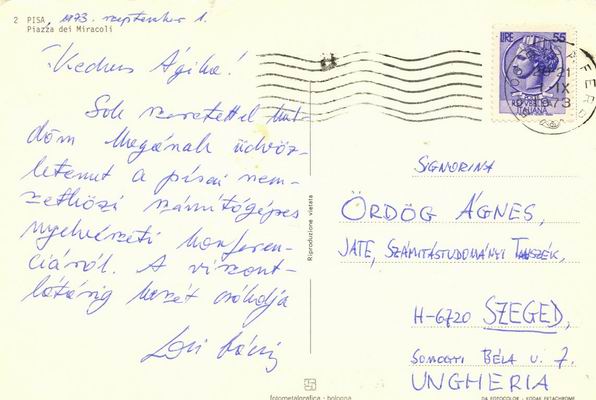 2 PISA, 1973. szeptember 1.
Piazza dei Miracoli
Kedves Ágika!
Sok szeretettel kül-
döm Magának üdvöz-
letemet a pisai nem-
zetközi számítógépes
nyelvészeti konferen-
ciáról. A viszont-
látásig kezét csókolja
Riproduzione vietata
LIRE 55
REPUBBLICA
ITALIANA
IX
SIGNORINA
ÖRDÖG ÁGNES,
JATE, SZÁMÍTÁSTUDOMÁNYI TANSZÉK,
H-6720 SZEGED,
SOMOGYI BÉLA U. 7.
UNGHERIA
fotometalgrafica - bologna
DA FOTOCOLOR - KODAK EKTACHROME